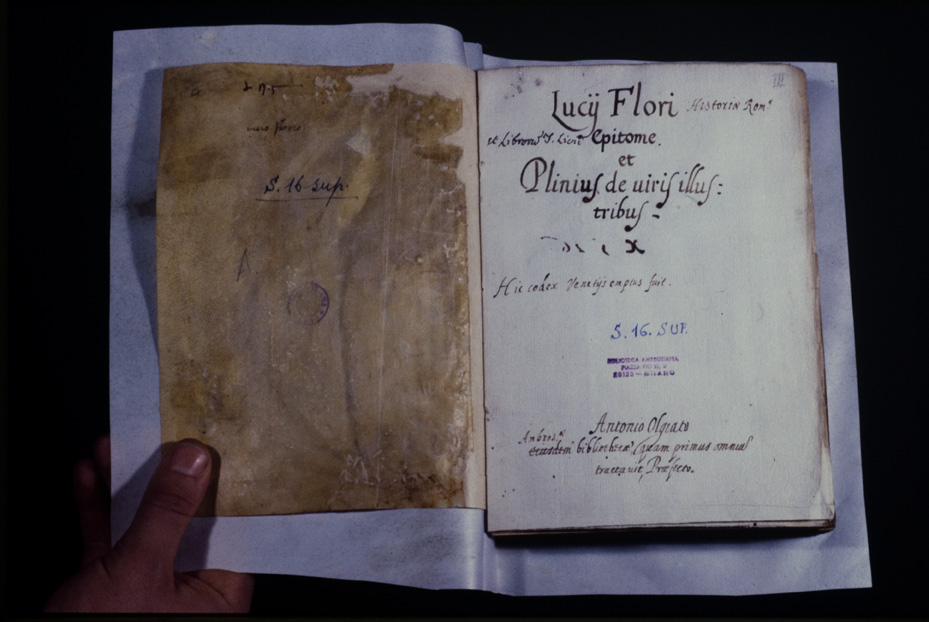 S. 16 sup.
A
III
Lucij Flori Historiæ Romᵉ
et Librorū Epitome.
et
Plinius de uiris illus:
tribus
Hic codex Venetijs emptus fuit.
S. 16. SUP.
BIBLIOTECA AMBROSIANA
20123 - MILANO
Antonio Olgiato
Ambrosᵉ
eiusdem bibliothecæ quam primus omniū
tractauit, Præfecto.